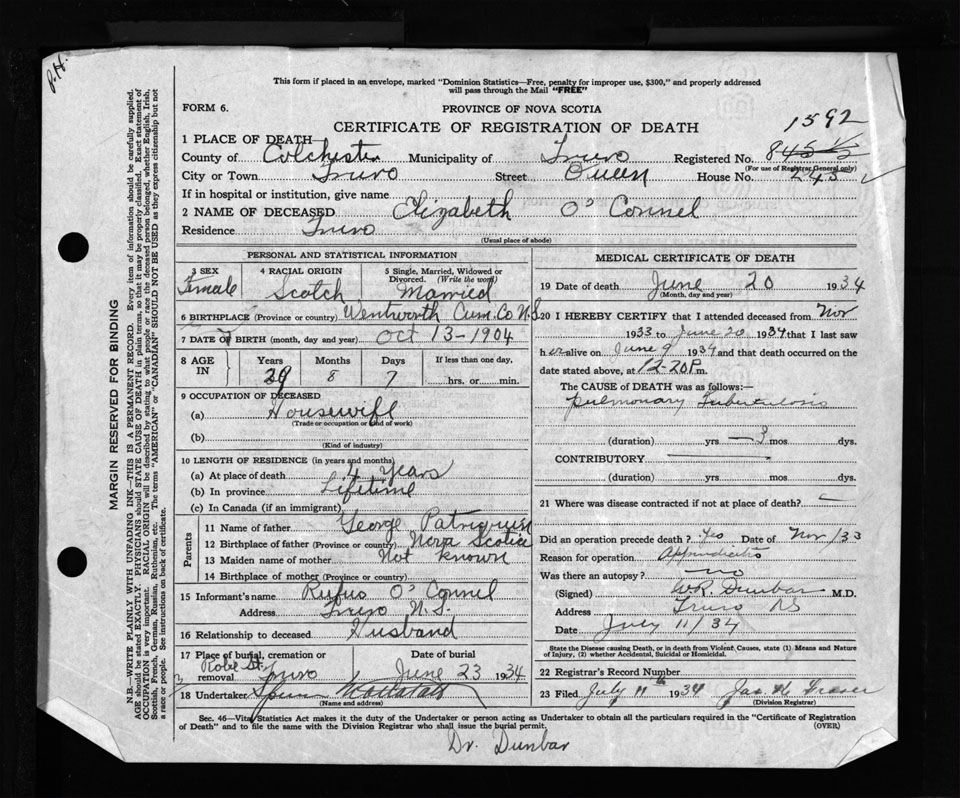 P.H.
This form if placed in an envelope, marked "Dominion Statistics—Free, penalty for improper use, $300," and properly addressed
will pass through the Mail "FREE"
FORM 6.
PROVINCE OF NOVA SCOTIA
CERTIFICATE OF REGISTRATION OF DEATH
1592
1 PLACE OF DEATH—
County of Colchester Municipality of Truro Registered No. 845
(For use of Registrar General only)
City or Town Truro Street Queen House No. 245
If in hospital or institution, give name
2 NAME OF DECEASED Elizabeth O'Connel
Residence Truro
(Usual place of abode)
PERSONAL AND STATISTICAL INFORMATION
3 SEX Female
4 RACIAL ORIGIN Scotch
5 Single, Married, Widowed or Divorced. (Write the word) Married
6 BIRTHPLACE (Province or country) Wentworth Cum. Co N.S.
7 DATE OF BIRTH (month, day and year) Oct 13-1904
8 AGE IN Years 29 Months 8 Days 7 If less than one day, hrs. or min.
9 OCCUPATION OF DECEASED
(a) Housewife
(Trade or occupation or kind of work)
(b)
(Kind of industry)
10 LENGTH OF RESIDENCE (in years and months)
(a) At place of death 4 years
(b) In province Lifetime
(c) In Canada (if an immigrant)
Parents
11 Name of father George Patriquin
12 Birthplace of father (Province or country) Nova Scotia
13 Maiden name of mother Not known
14 Birthplace of mother (Province or country)
15 Informant's name Rufus O'Connel
Address Truro N.S.
16 Relationship to deceased Husband
17 Place of burial, cremation or removal Robie St. Truro Date of burial June 23 1934
18 Undertaker
(Name and address)
MEDICAL CERTIFICATE OF DEATH
19 Date of death June 20 1934
(Month, day and year)
20 I HEREBY CERTIFY that I attended deceased from Nov
1933 to June 20 1934 that I last saw
her alive on June 9 1934 and that death occurred on the
date stated above, at 12-20 P.m.
The CAUSE OF DEATH was as follows:—
Pulmonary Tuberculosis
(duration) yrs — 3 mos. dys.
CONTRIBUTORY
(duration) yrs. mos. dys.
21 Where was disease contracted if not at place of death?
Did an operation precede death? Yes Date of Nov/33
Reason for operation Appendicitis
Was there an autopsy? no
(Signed) W.R. Dunbar M.D.
Address Truro NS
Date July 11/34
State the Disease causing Death, or in death from Violent Causes, state (1) Means and Nature
of Injury, (2) whether Accidental, Suicidal or Homicidal.
22 Registrar's Record Number
23 Filed July 11 1934 Jas M Fraser
(Division Registrar)
Sec. 46—Vital Statistics Act makes it the duty of the Undertaker or person acting as Undertaker to obtain all the particulars required in the "Certificate of Registration
of Death" and to file the same with the Division Registrar who shall issue the burial permit.
(OVER)
Dr. Dunbar
MARGIN RESERVED FOR BINDING
N.B.—WRITE PLAINLY WITH UNFADING INK—THIS IS A PERMANENT RECORD. Every item of information should be carefully supplied.
AGE should be stated EXACTLY. PHYSICIANS should STATE CAUSE OF DEATH in plain terms, so that it may be properly classified. Exact statement of
OCCUPATION is very important. RACIAL ORIGIN will be described by stating to what people or race the deceased person belonged, whether English, Irish,
Scottish, French, German, Russian, Ruthenian, etc. The terms "AMERICAN" or "CANADIAN" SHOULD NOT BE USED as they express citizenship but not
a race or people. See instructions on back of certificate.